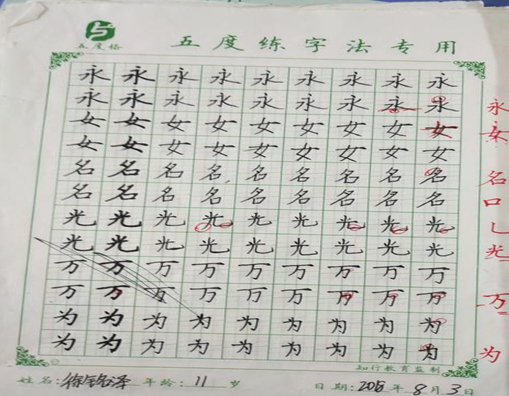 五度格
五度练字法专用
永永永永永永永永永
永永永永永永永永永
女女女女女女女女女
女女女女女女女女女
名名名名名名名名名
名名名名名名名名名
光光光光光光光光光
光光光光光光光光光
万万万万万万万万万
万万万万万万万万万
为为为为为为为为为
为为为为为为为为为
永
女
名
口
乚
光
万
为
知行教育监制
姓名: 徐铭泽 年龄: 11 岁 日期: 2015年8月3日